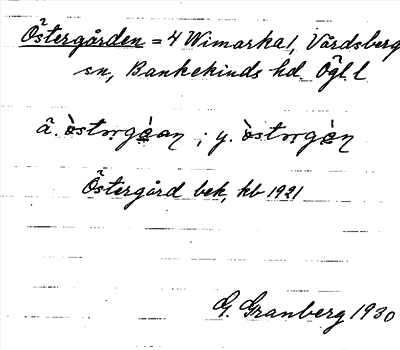 Östergården = 4 Wimarka 1, Vårdsberg
sn, Bankekinds hd. Ögl. l
ä. òstərgɑ̀an ; y. òstərgɑ̀n
Östergård bek, kb 1921
G. Granberg 1930